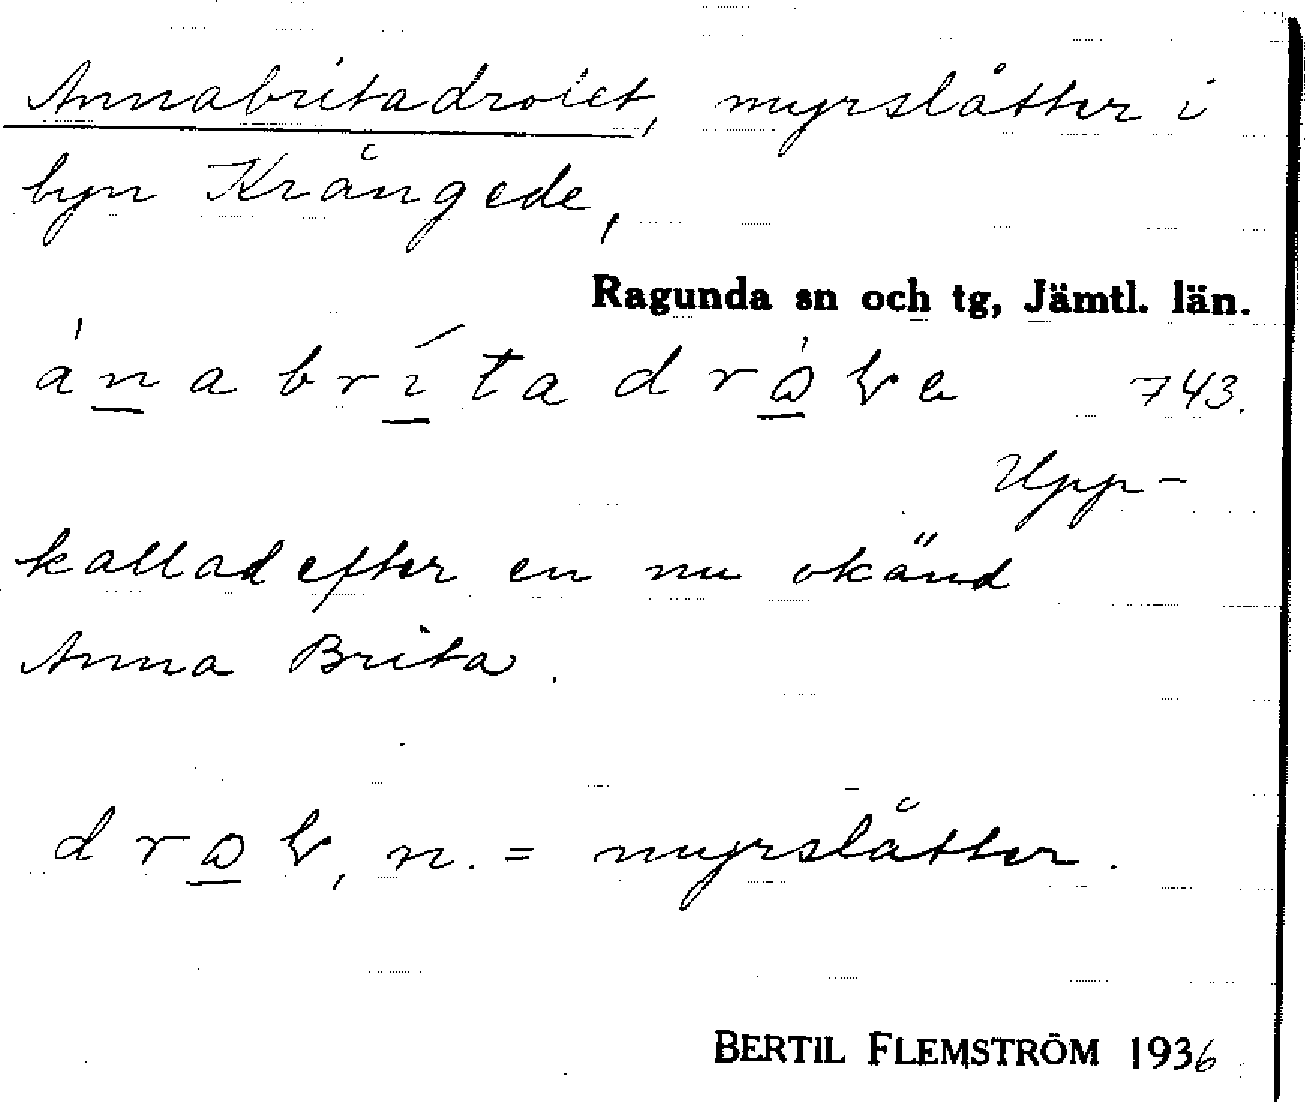 Annabritadrolet, myrslåtter i
byn Krångede,
Ragunda sn och tg, Jämtl. län.
743.
Upp-
kallad efter en nu okänd
Anna Brita.
n. = myrslåtter.
BERTIL FLEMSTRÖM 1936